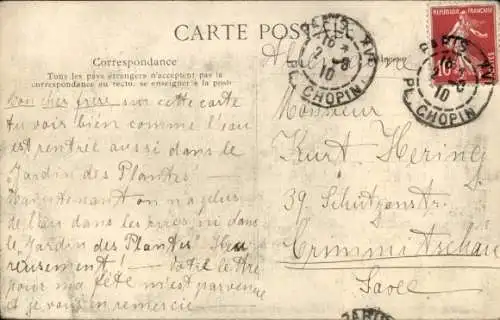 CARTE POSTALE
Correspondance
Tous les pays étrangers n'acceptent pas la
correspondance au recto. se renseigner à la poste
Mon cher frère sur cette carte
tu vois bien comme l'eau
est rentrée aussi dans le
Jardin des Plantes.
Maintenant on n'a plus
de l'eau dans les rues ni dans
le Jardin des Plantes. Heu
reusement! — Votre lettre
pour ma fête m'est parvenue
et je vous en remercie —
RÉPUBLIQUE FRANÇAISE
10
PARIS XVI
PL. CHOPIN
10
PARIS XVI
PL. CHOPIN
10
Monsieur
Kurt Hering
39 Schützenstr
Crimmitschau
Saxe
PARIS